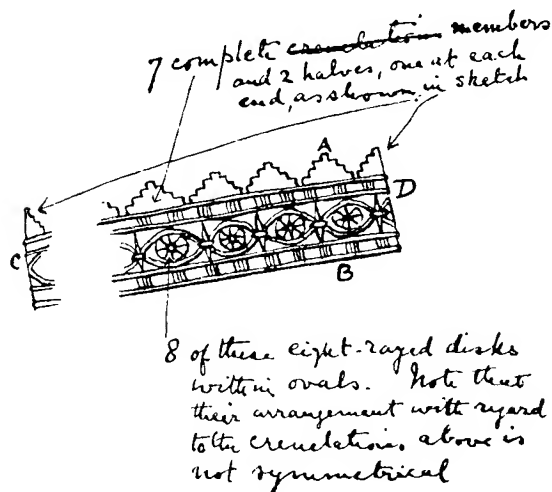 7 complete crenelation members
and 2 halves, one at each
end, as shown in sketch
A
D
C
B
8 of these eight-rayed disks
within ovals. Note that
their arrangement with regard
to the crenelations above is
not symmetrical